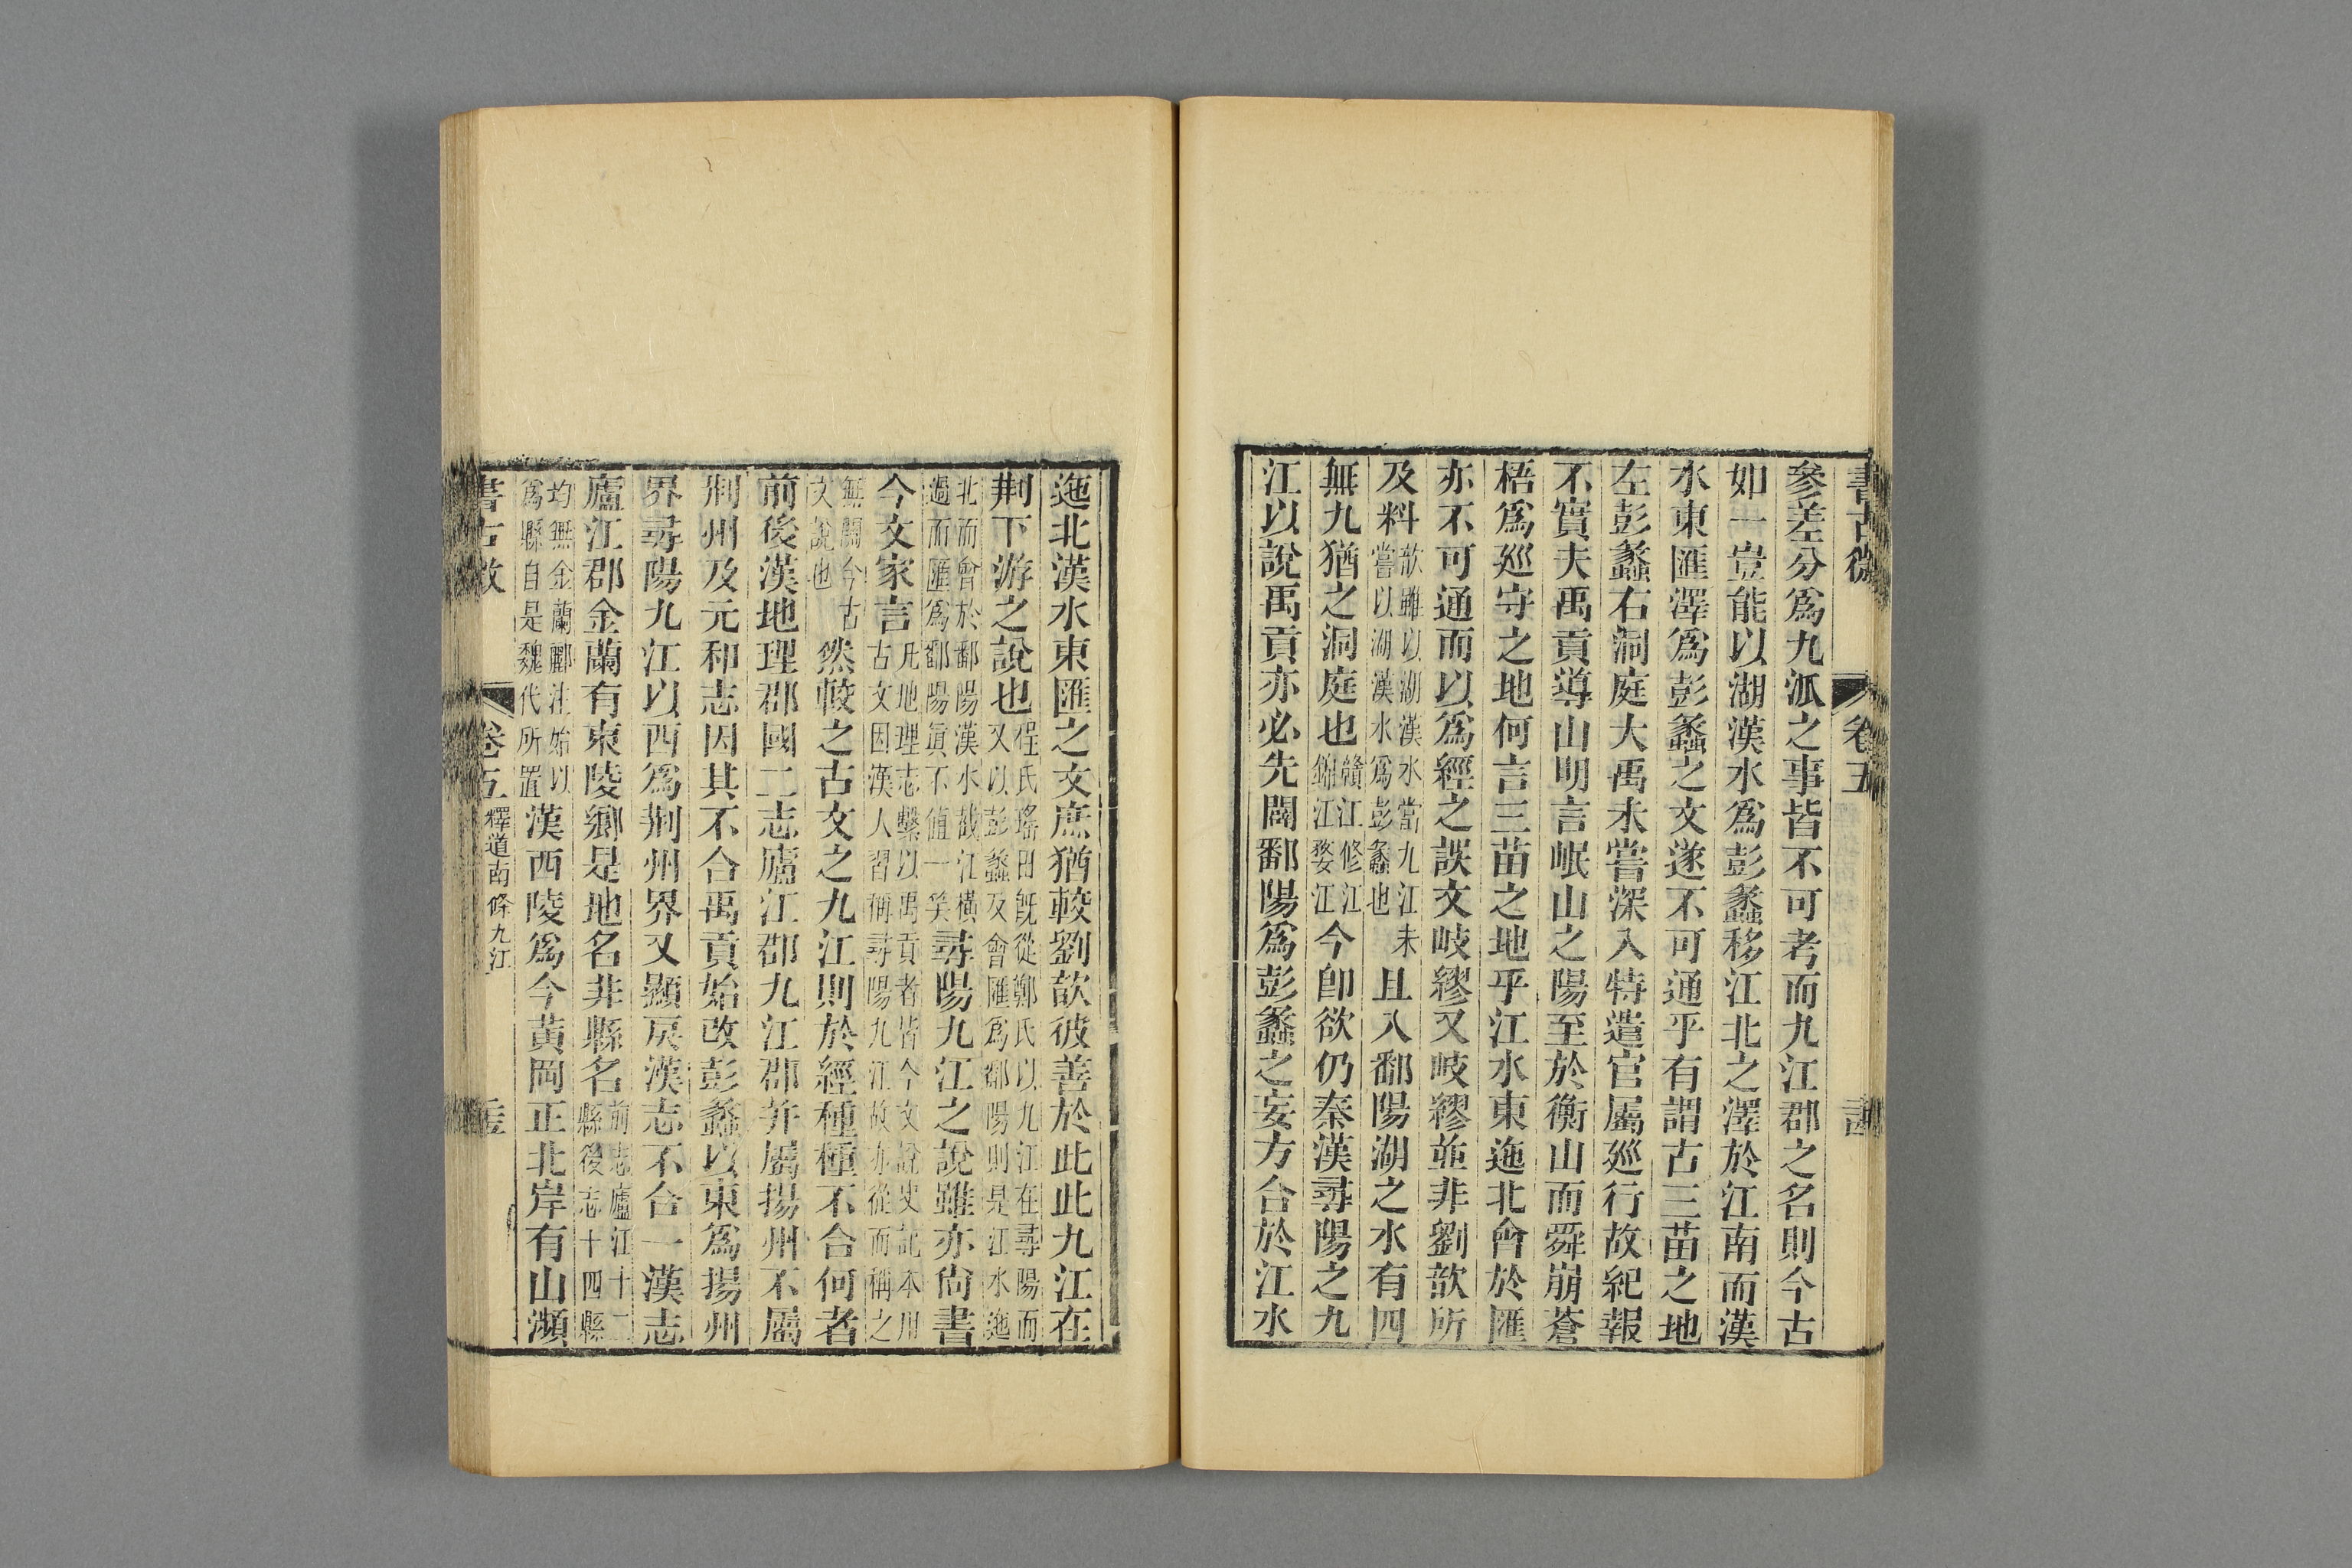 書古微 卷五
參差分爲九派之事皆不可考而九江郡之名則今古
如一豈能以湖漢水爲彭蠡移江北之澤於江南而漢
水東匯澤爲彭蠡之文遂不可通乎有謂古三苗之地
左彭蠡右洞庭大禹未嘗深入特遣官屬廵行故紀報
不實夫禹貢導山明言岷山之陽至於衡山而舜崩蒼
梧爲廵守之地何言三苗之地乎江水東迆北會於匯
亦不可通而以爲經之誤文岐繆又岐繆並非劉歆所
及料歆雖以湖漢水當九江未嘗以湖漢水爲彭蠡也且入鄱陽湖之水有四
無九猶之洞庭也贛江修江錦江婺江今卽欲仍秦漢尋陽之九
江以說禹貢亦必先闢鄱陽爲彭蠡之妄方合於江水
迆北漢水東匯之文庶猶較劉歆彼善於此此九江在
荆下游之說也程氏瑤田旣從鄭氏以九江在尋陽而又以彭蠡及會匯爲鄱陽則是江水迆
北而會於鄱陽漢水截江橫過而匯爲鄱陽眞不値一笑尋陽九江之說雖亦尙書
今文家言凡地理志繫以禹貢者皆今文說史記本用古文因漢人習稱尋陽九江故亦從而稱之
無關今古文說也然較之古文之九江則於經種種不合何者
前後漢地理郡國二志廬江郡九江郡并屬揚州不屬
荆州及元和志因其不合禹貢始改彭蠡以東爲揚州
界尋陽九江以西爲荆州界又顯戾漢志不合一漢志
廬江郡金蘭有東陵鄉是地名非縣名前志廬江十二縣後志十四縣
均無金蘭酈注始以爲縣自是魏代所置漢西陵爲今黃岡正北岸有山瀕
書古微 卷五 釋道南條九江